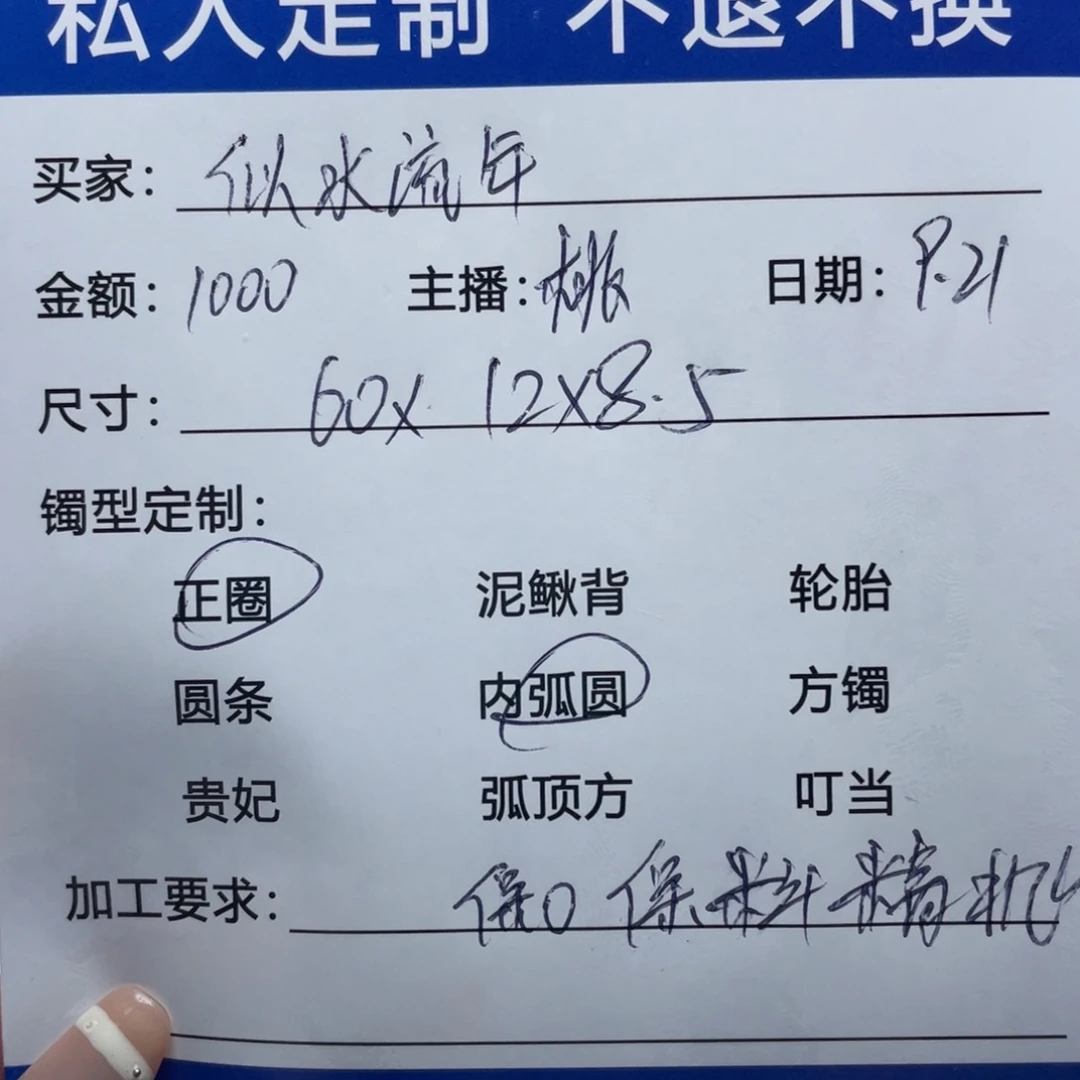 私人定制 不退不换
买家：似水流年
金额：1000 主播：桃 日期：9.21
尺寸：60x 12x8.5
镯型定制：
正圈 泥鳅背 轮胎
圆条 内弧圆 方镯
贵妃 弧顶方 叮当
加工要求：保0 保料 精机